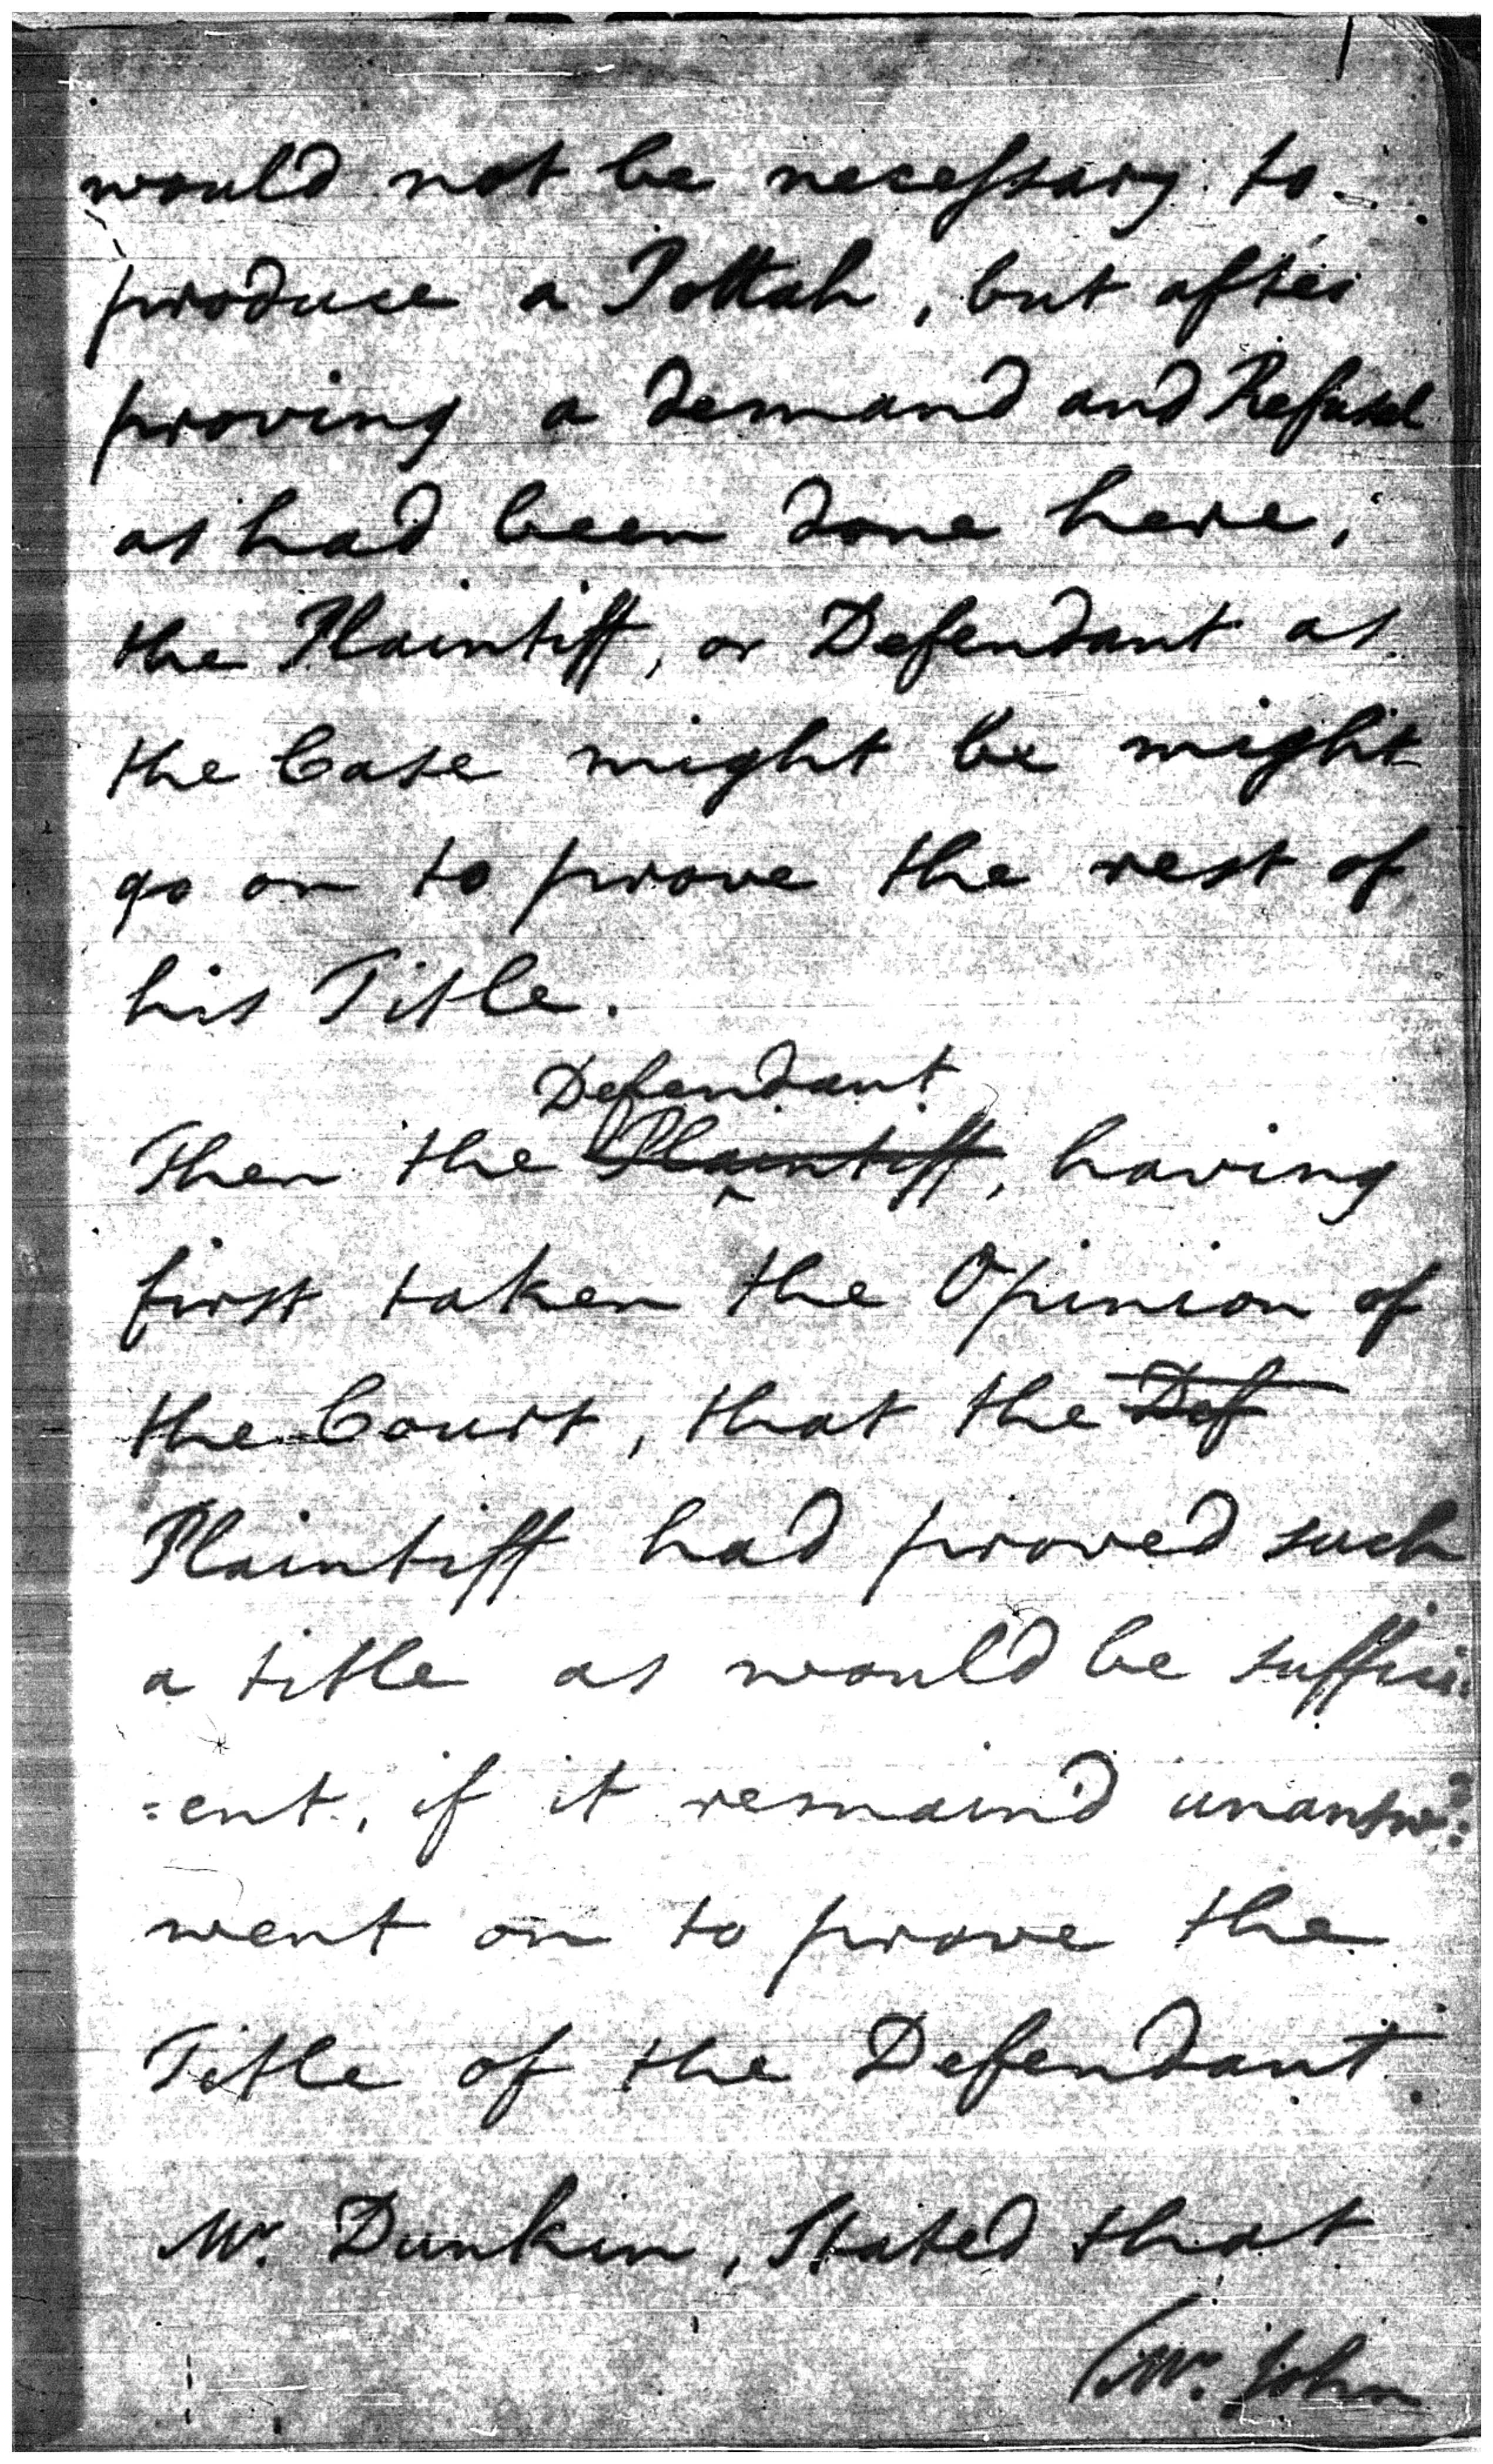 would not be necessary to
produce a Pottah, but after
proving a demand and Refusal
as had been done here,
the Plaintiff, or Defendant as
the Case might be might
go on to prove the rest of
his Title.
Defendant
Then the Plaintiff, having
first taken the Opinion of
the Court, that the Def
Plaintiff had proved such
a title as would be suffici:
:ent, if it remain'd unansw.d:
went on to prove the
Title of the Defendant.
Mr. Dunkin, Stated that
(Mr. John